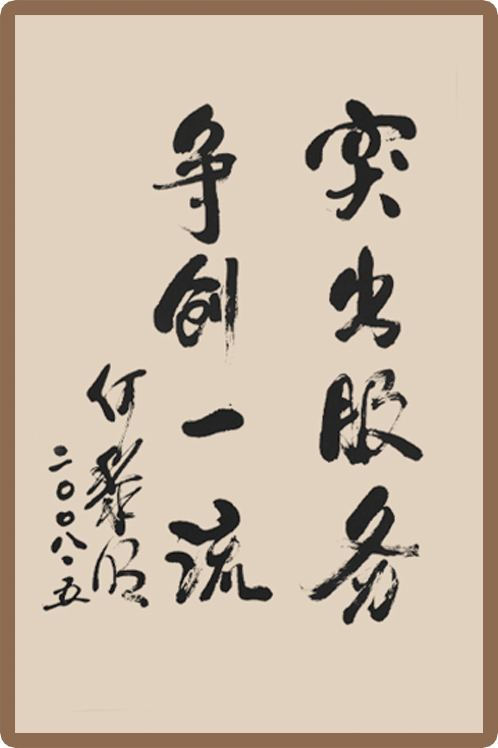 突出服务
争创一流
何黎明
二〇〇八·五